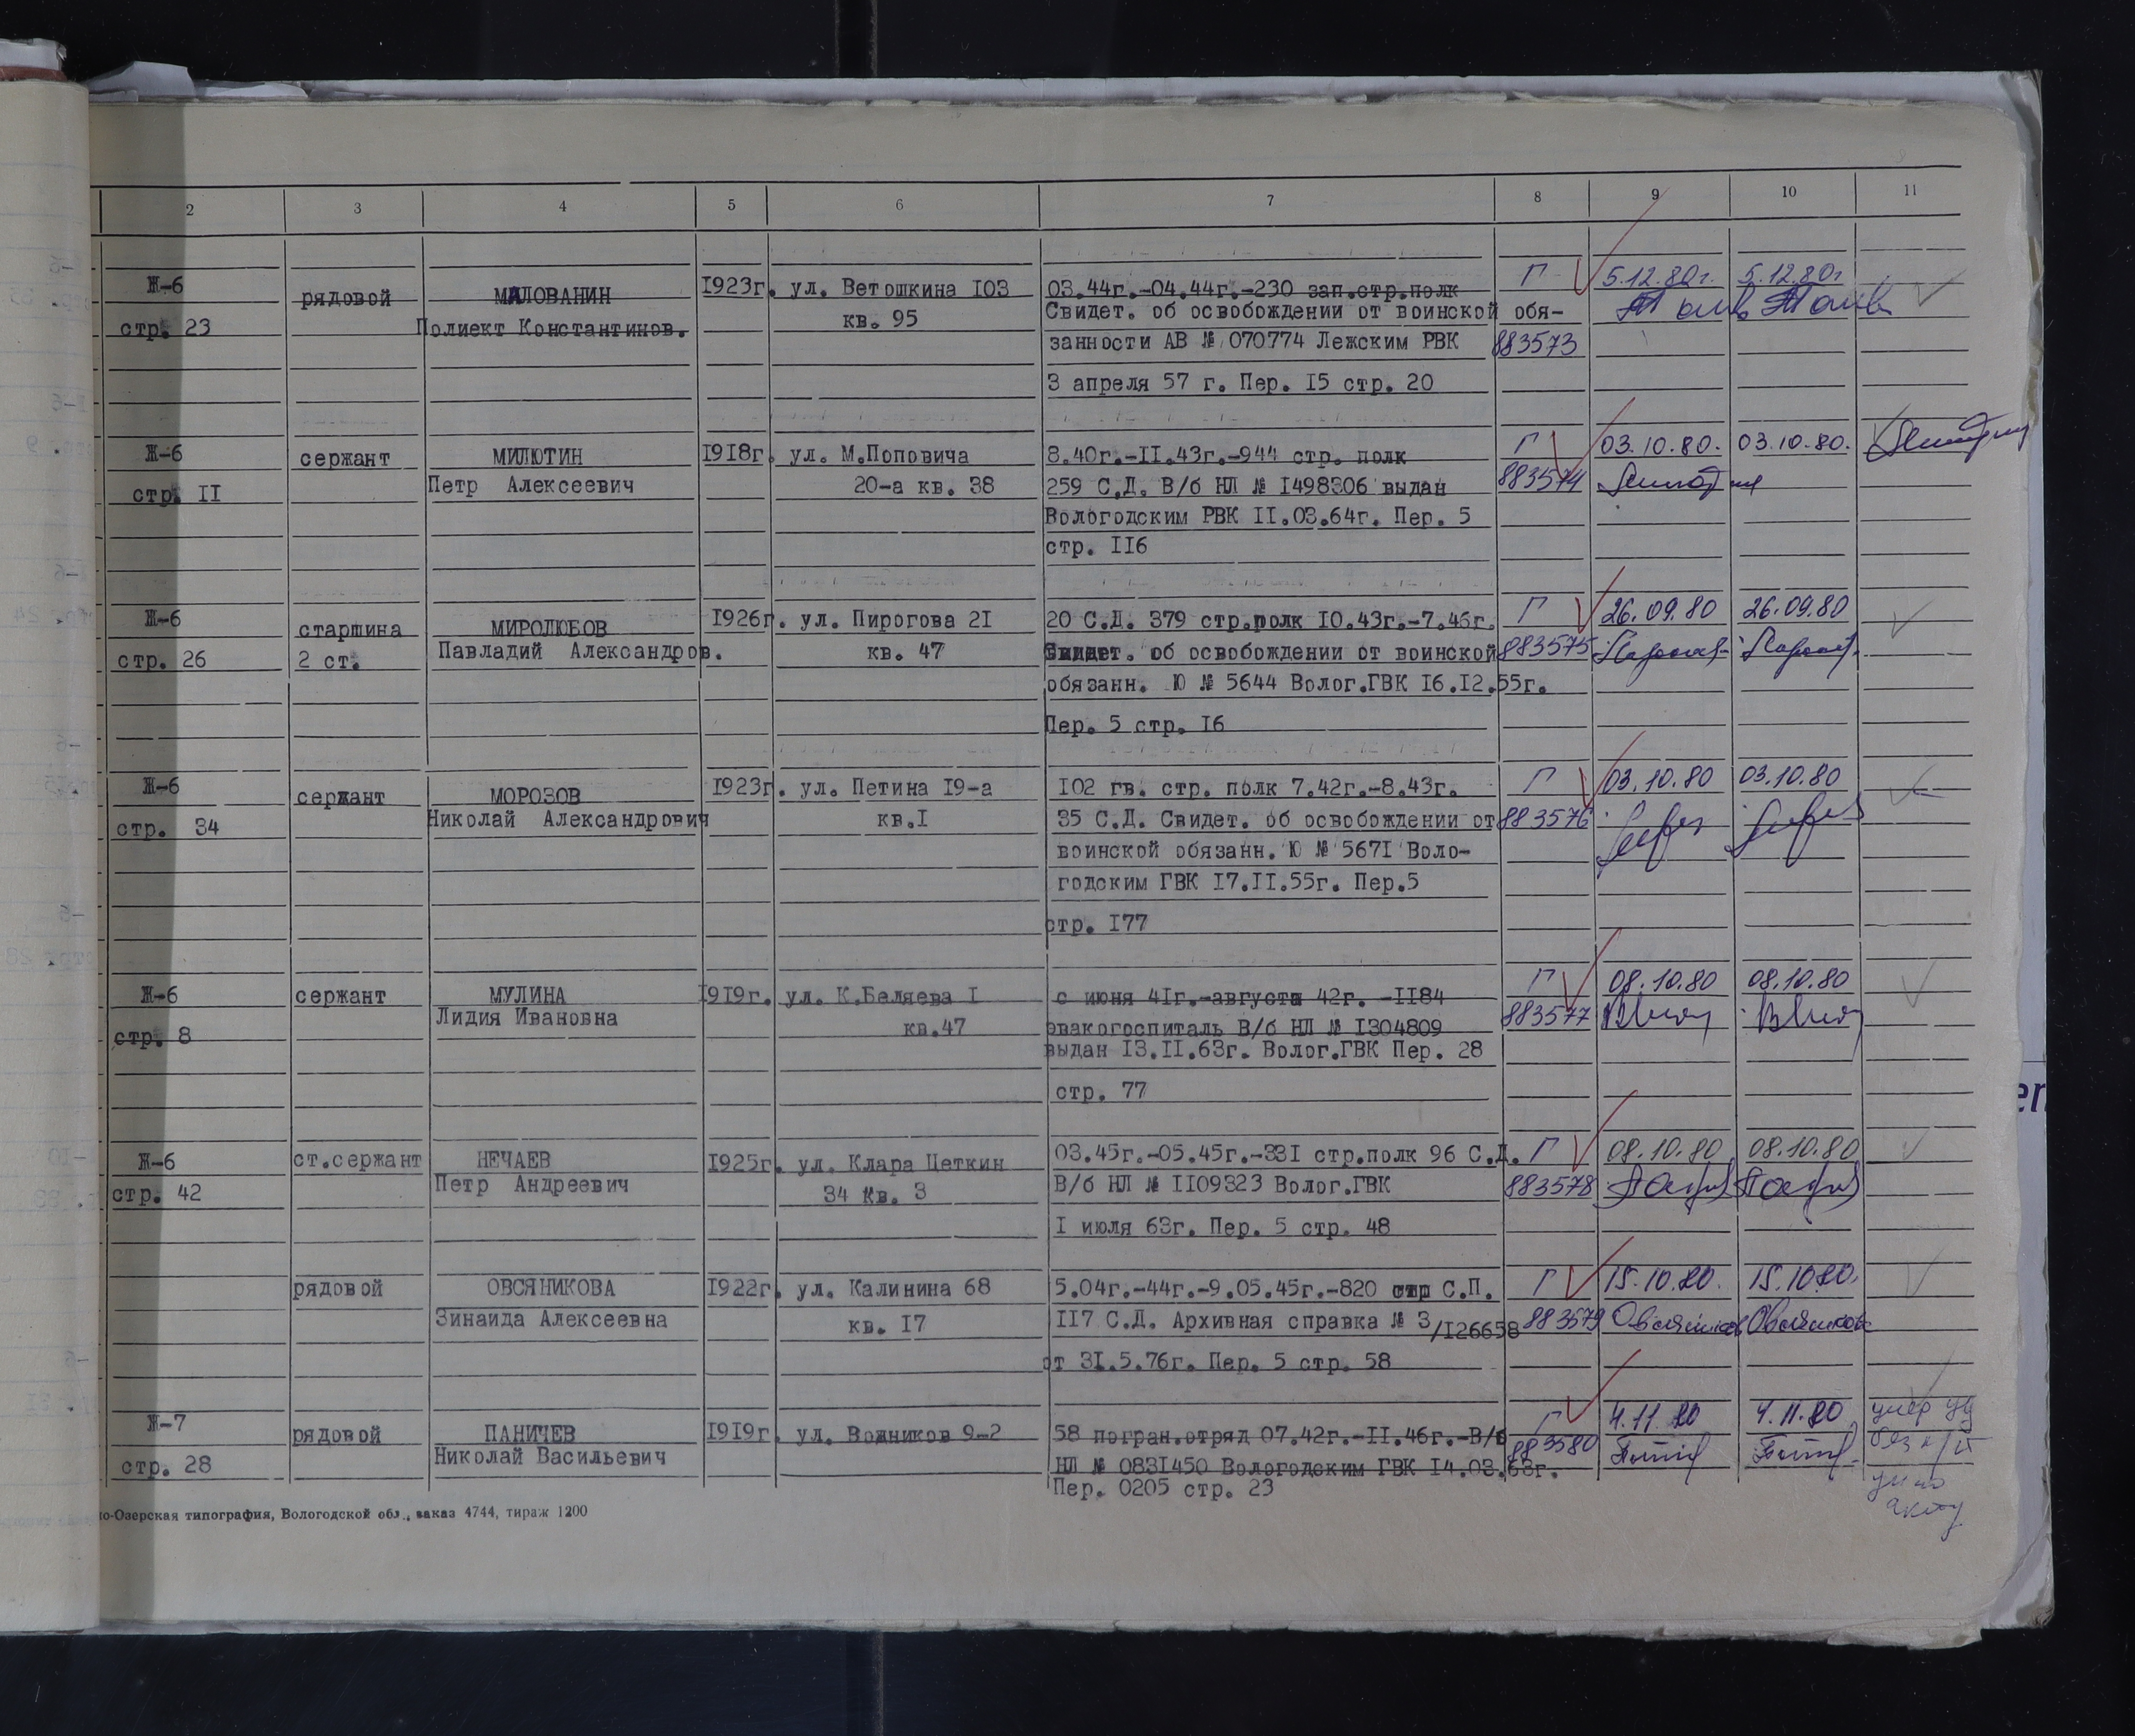 2 3 4 5 6 7 8 9 10 11
Ж-6 рядовой МАЛОВАНИН 1923г. ул. Ветошкина 103 03.44г.-04.44г.-230 зап.стр.полк Г 5.12.80г. 5.12.80г
стр. 23 Полиект Константинов. кв. 95 Свидет. об освобождении от воинской обя-
занности АВ № 070774 Лежским РВК 883573
3 апреля 57 г. Пер. 15 стр. 20
Ж-6 сержант МИЛЮТИН 1918г. ул. М.Поповича 8.40г.-11.43г.-944 стр. полк Г 03.10.80. 03.10.80.
стр. 11 Петр Алексеевич 20-а кв. 38 259 С.Д. В/б НЛ № 1498306 выдан 883574
Вологодским РВК 11.03.64г. Пер. 5
стр. 116
Ж-6 старшина МИРОЛЮБОВ 1926г. ул. Пирогова 21 20 С.Д. 379 стр.полк 10.43г.-7.46г. Г 26.09.80 26.09.80
стр. 26 2 ст. Павладий Александров. кв. 47 Свидет. об освобождении от воинской 883575
обязанн. Ю № 5644 Волог.ГВК 16.12.55г.
Пер. 5 стр. 16
Ж-6 сержант МОРОЗОВ 1923г. ул. Петина 19-а 102 гв. стр. полк 7.42г.-8.43г. Г 03.10.80 03.10.80
стр. 34 Николай Александрович кв.1 35 С.Д. Свидет. об освобождении от 883576
воинской обязанн. Ю № 5671 Воло-
годским ГВК 17.11.55г. Пер.5
стр. 177
Ж-6 сержант МУЛИНА 1919г. ул. К.Беляева 1 с июня 41г.-августа 42г. -1184 Г 08.10.80 08.10.80
стр. 8 Лидия Ивановна кв.47 эвакогоспиталь В/б НЛ № 1304809 883577
выдан 13.11.63г. Волог.ГВК Пер. 28
стр. 77
Ж-6 ст.сержант НЕЧАЕВ 1925г. ул. Клара Цеткин 03.45г.-05.45г.-331 стр.полк 96 С.Д. Г 08.10.80 08.10.80
стр. 42 Петр Андреевич 34 Кв. 3 В/б НЛ № 1109323 Волог.ГВК 883578
1 июля 63г. Пер. 5 стр. 48
рядовой ОВСЯНИКОВА 1922г. ул. Калинина 68 5.04г.-44г.-9.05.45г.-820 стр С.П. Г 15.10.80. 15.10.80.
Зинаида Алексеевна кв. 17 117 С.Д. Архивная справка № 3/126658 883579
от 31.5.76г. Пер. 5 стр. 58
Ж-7 рядовой ПАНИЧЕВ 1919г. ул. Водников 9-2 58 погран.отряд 07.42г.-11.46г.-В/б Г 4.11.80 4.11.80 умер
стр. 28 Николай Васильевич НЛ № 0831450 Вологодским ГВК 14.03.63г. 883580
Пер. 0205 стр. 23
акту
о-Озерская типография, Вологодской обл., заказ 4744, тираж 1200